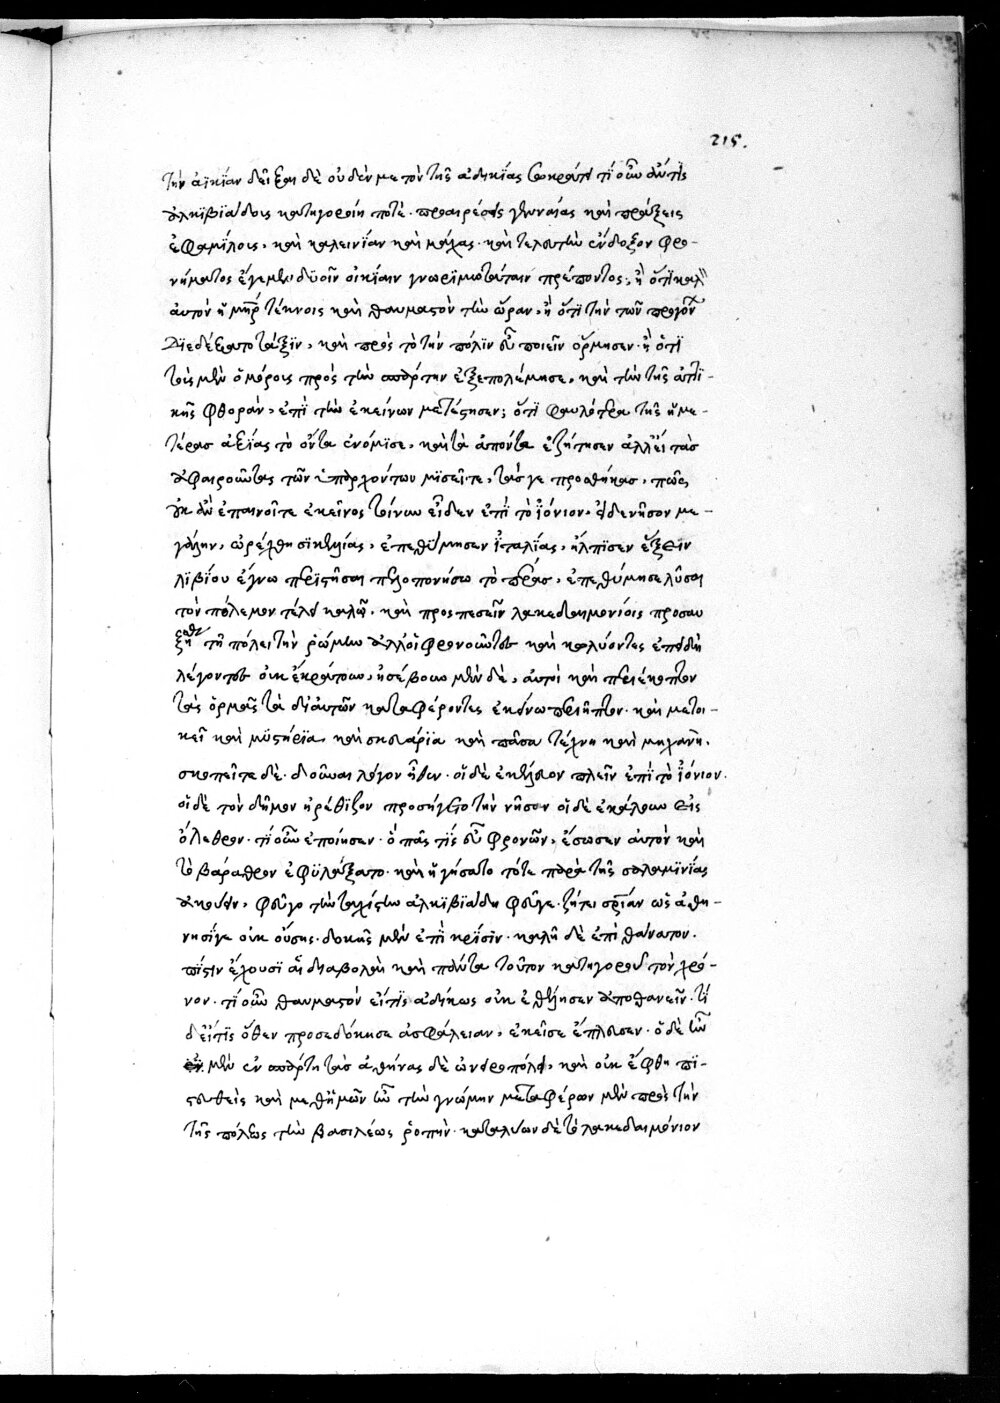 215.
τὴν αἰκίαν δεῖξαι δὲ οὐδὲν μετὸν τῆς ἀδικίας Σωκράτει τί οὖν ἄν τις
ἀλκιβιάδους κατηγοροίη ποτέ· προαιρέσεις γενναίας καὶ πράξεις
ἐφαμίλλοις, καὶ κλεινίαν καὶ μάχας· καὶ τελευτὴν ἔνδοξον φρο-
νήματος ἔγεμεν δυοῖν οἰκίαιν γνωριμωτάταιν πρέποντος, ἢ ὅτι καλ
αὐτὸν ἡ μηρ τέκνοις καὶ θαυμαστὸν τὴν ὥραν, ἢ ὅτι τὴν τῶν προγον
διεδέξατο τάξϊν, καὶ πρὸς τὸ τὴν πόλϊν εὖ ποιεῖν ὥρμησεν· ἢ ὅτϊ
τοῖς μὲν ὁμόροις πρὸς τὴν σπάρτην ἐξεπολέμησε, καὶ τὴν τῆς ἀττι-
κῆς φθοράν, ἐπὶ τὴν ἐκείνων μετέστησεν; ὅτϊ φαυλότερα τῆς ἡμε-
τέρας ἀξίας τὸ ὄντα ἐνόμισε, καὶ τὰ ἀπόντα ἐζήτησεν ἀλλ' εἰ τὰσ
ἀφαιροῦντας τῶν ὑπαρχόντων μϊσεῖτε, τάς γε προσθήκασ, πῶς
οὐκ ἂν ἐπαινοῖτε ἐκεῖνος τοίνυν εἶδεν ἐπὶ τὸ ἰόνιον, νῆσον με-
γάλην, ὠρέχθη σϊκελίας, ἐπεθύμησεν ἰταλίας, ἤλπϊσεν ἕξειν
λιβύου ἔγνω περιστῆσαι πελοπονήσω τὸ πέρασ, ἐπεθύμησε λῦσαι
τὸν πόλεμον τέλει καλῷ, καὶ προσπεσεῖν λακεδαιμονίοις προσαυ
ξη τῇ πόλει τὴν ῥώμην ἀλλ' οἱ φρονοῦντες καὶ κωλύοντες ἐπειδὴ
λέγοντες οὐκ ἐκράτουν, ἠσέβουν μὲν δὲ, αὐτοὶ καὶ περιέκοπτον
τὰς ὁρμὰς τὰ δι' αὐτῶν καταφέροντες ἐκείνω περιῆπτον· καὶ μετοι-
κεῖ καὶ μυστήρια, καὶ σκευάρϊα καὶ πᾶσα τέχνη καὶ μηχανή.
σκοπεῖτε δὲ· δοῦναι λόγον ἤθων· οἱ δὲ ἐκέλευον πλεῖν ἐπὶ τὸ ἰόνιον.
οἱ δὲ τὸν δῆμον ἠρέθϊζον προσήγετο τὴν νῆσον οἱ δὲ ἐκάλουν εἰς
ὄλεθρον· τί οὖν ἐποίησεν· ὁ πᾶς τὶς εὖ φρονῶν, ἔσωσεν αὐτὸν καὶ
τὸ βάραθρον ἐφυλάξατο· καὶ ἡγήσατο τότε παρὰ τῆς σαλαμινίας
ἀκούειν, φεῦγε τὴν ταχίστην ἀλκιβϊάδη φεῦγε· ζήτει σρίαν ὡς ἀθη-
νησίγε οὐκ οὔσης· δοκῆς μὲν ἐπὶ κρίσϊν· καλῆ δὲ ἐπὶ θάνατον.
πίστϊν ἔχουσϊ αἱ διαβολαὶ καὶ πάντα τοῦτον κατηγορεῖ τὸν χρό-
νον· τί οὖν θαυμαστὸν εἴ τϊς ἀδίκως οὐκ ἐθέλησεν ἀποθανεῖν· τί
δ' εἴ τϊς ὅθεν προσεδόκησε ἀσφάλειαν, ἐκεῖσε ἔπλευσεν· ὁ δὲ ἦν
μὲν ἐν σπάρτη τὰσ ἀθήνας δὲ ὠνειροπόλει, καὶ οὐκ ἔφθη πι-
στευθεὶς καὶ μεθ' ἡμῶν ἦν τὴν γνώμην μεταφέρων μὲν πρὸς τὴν
τῆς πόλεως τὴν βασιλέως ῥοπὴν· καταλύων δὲ τὸ λακεδαιμόνιον